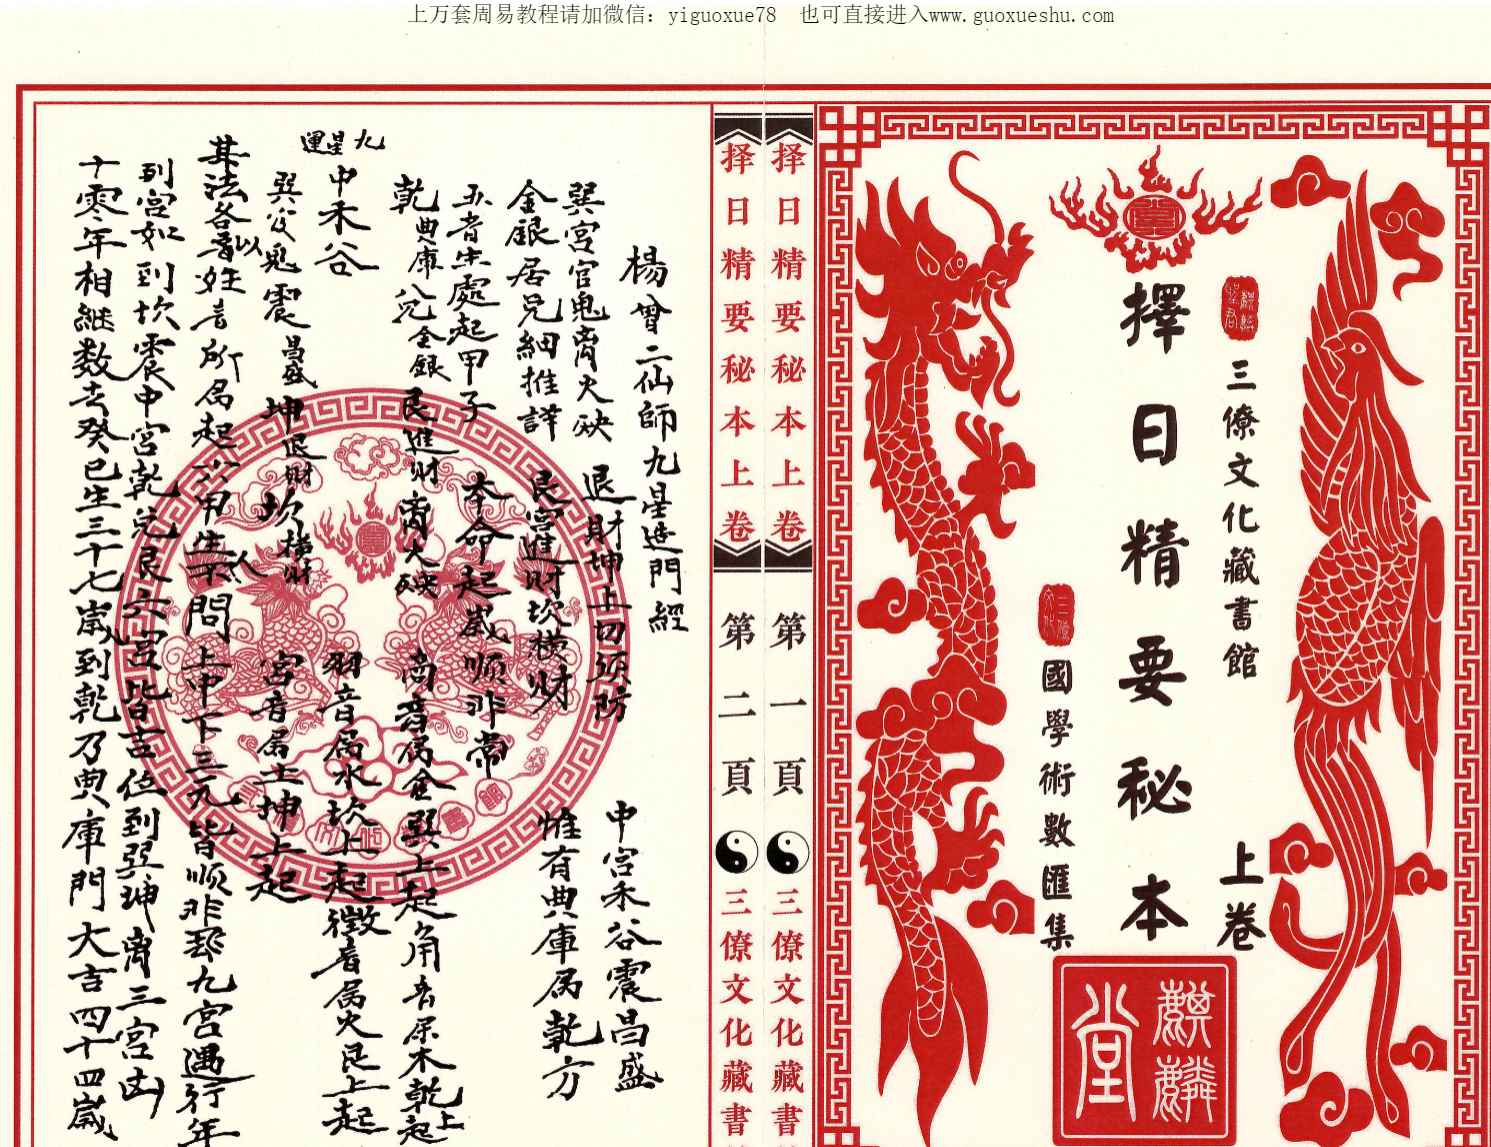 上万套周易教程请加微信：yiguoxue78　也可直接进入www.guoxueshu.com
三僚文化藏書館
擇日精要秘本
上卷
國學術數匯集
麒麟堂
择日精要秘本上卷 第一頁 三僚文化藏書
择日精要秘本上卷 第二頁 三僚文化藏書
楊曾二仙師九星造門經
中宮禾谷震昌盛
退財坤上切须防
巽宮官鬼离火殃
惟有典庫属乾方
艮宮進財坎横財
金銀居兑細推詳
本命起歲顺非常
五音生處起甲子
乾典庫兑金銀艮進財离火殃
商音属金巽上起角音属木乾上起
九星運
中禾谷
羽音属水坎上起徵音属火艮上起
巽官鬼震昌盛坤退財坎横財
宮音属土坤上起
其法各以音姓音所属起六甲生人不問上中下三元皆顺非飛九宮遇行年
到宮如到坎震中宮乾兑艮六宮皆吉位到巽坤离三宮凶
十零年相継数去癸巳生三十七歲到乾乃典庫門大吉四十四歲